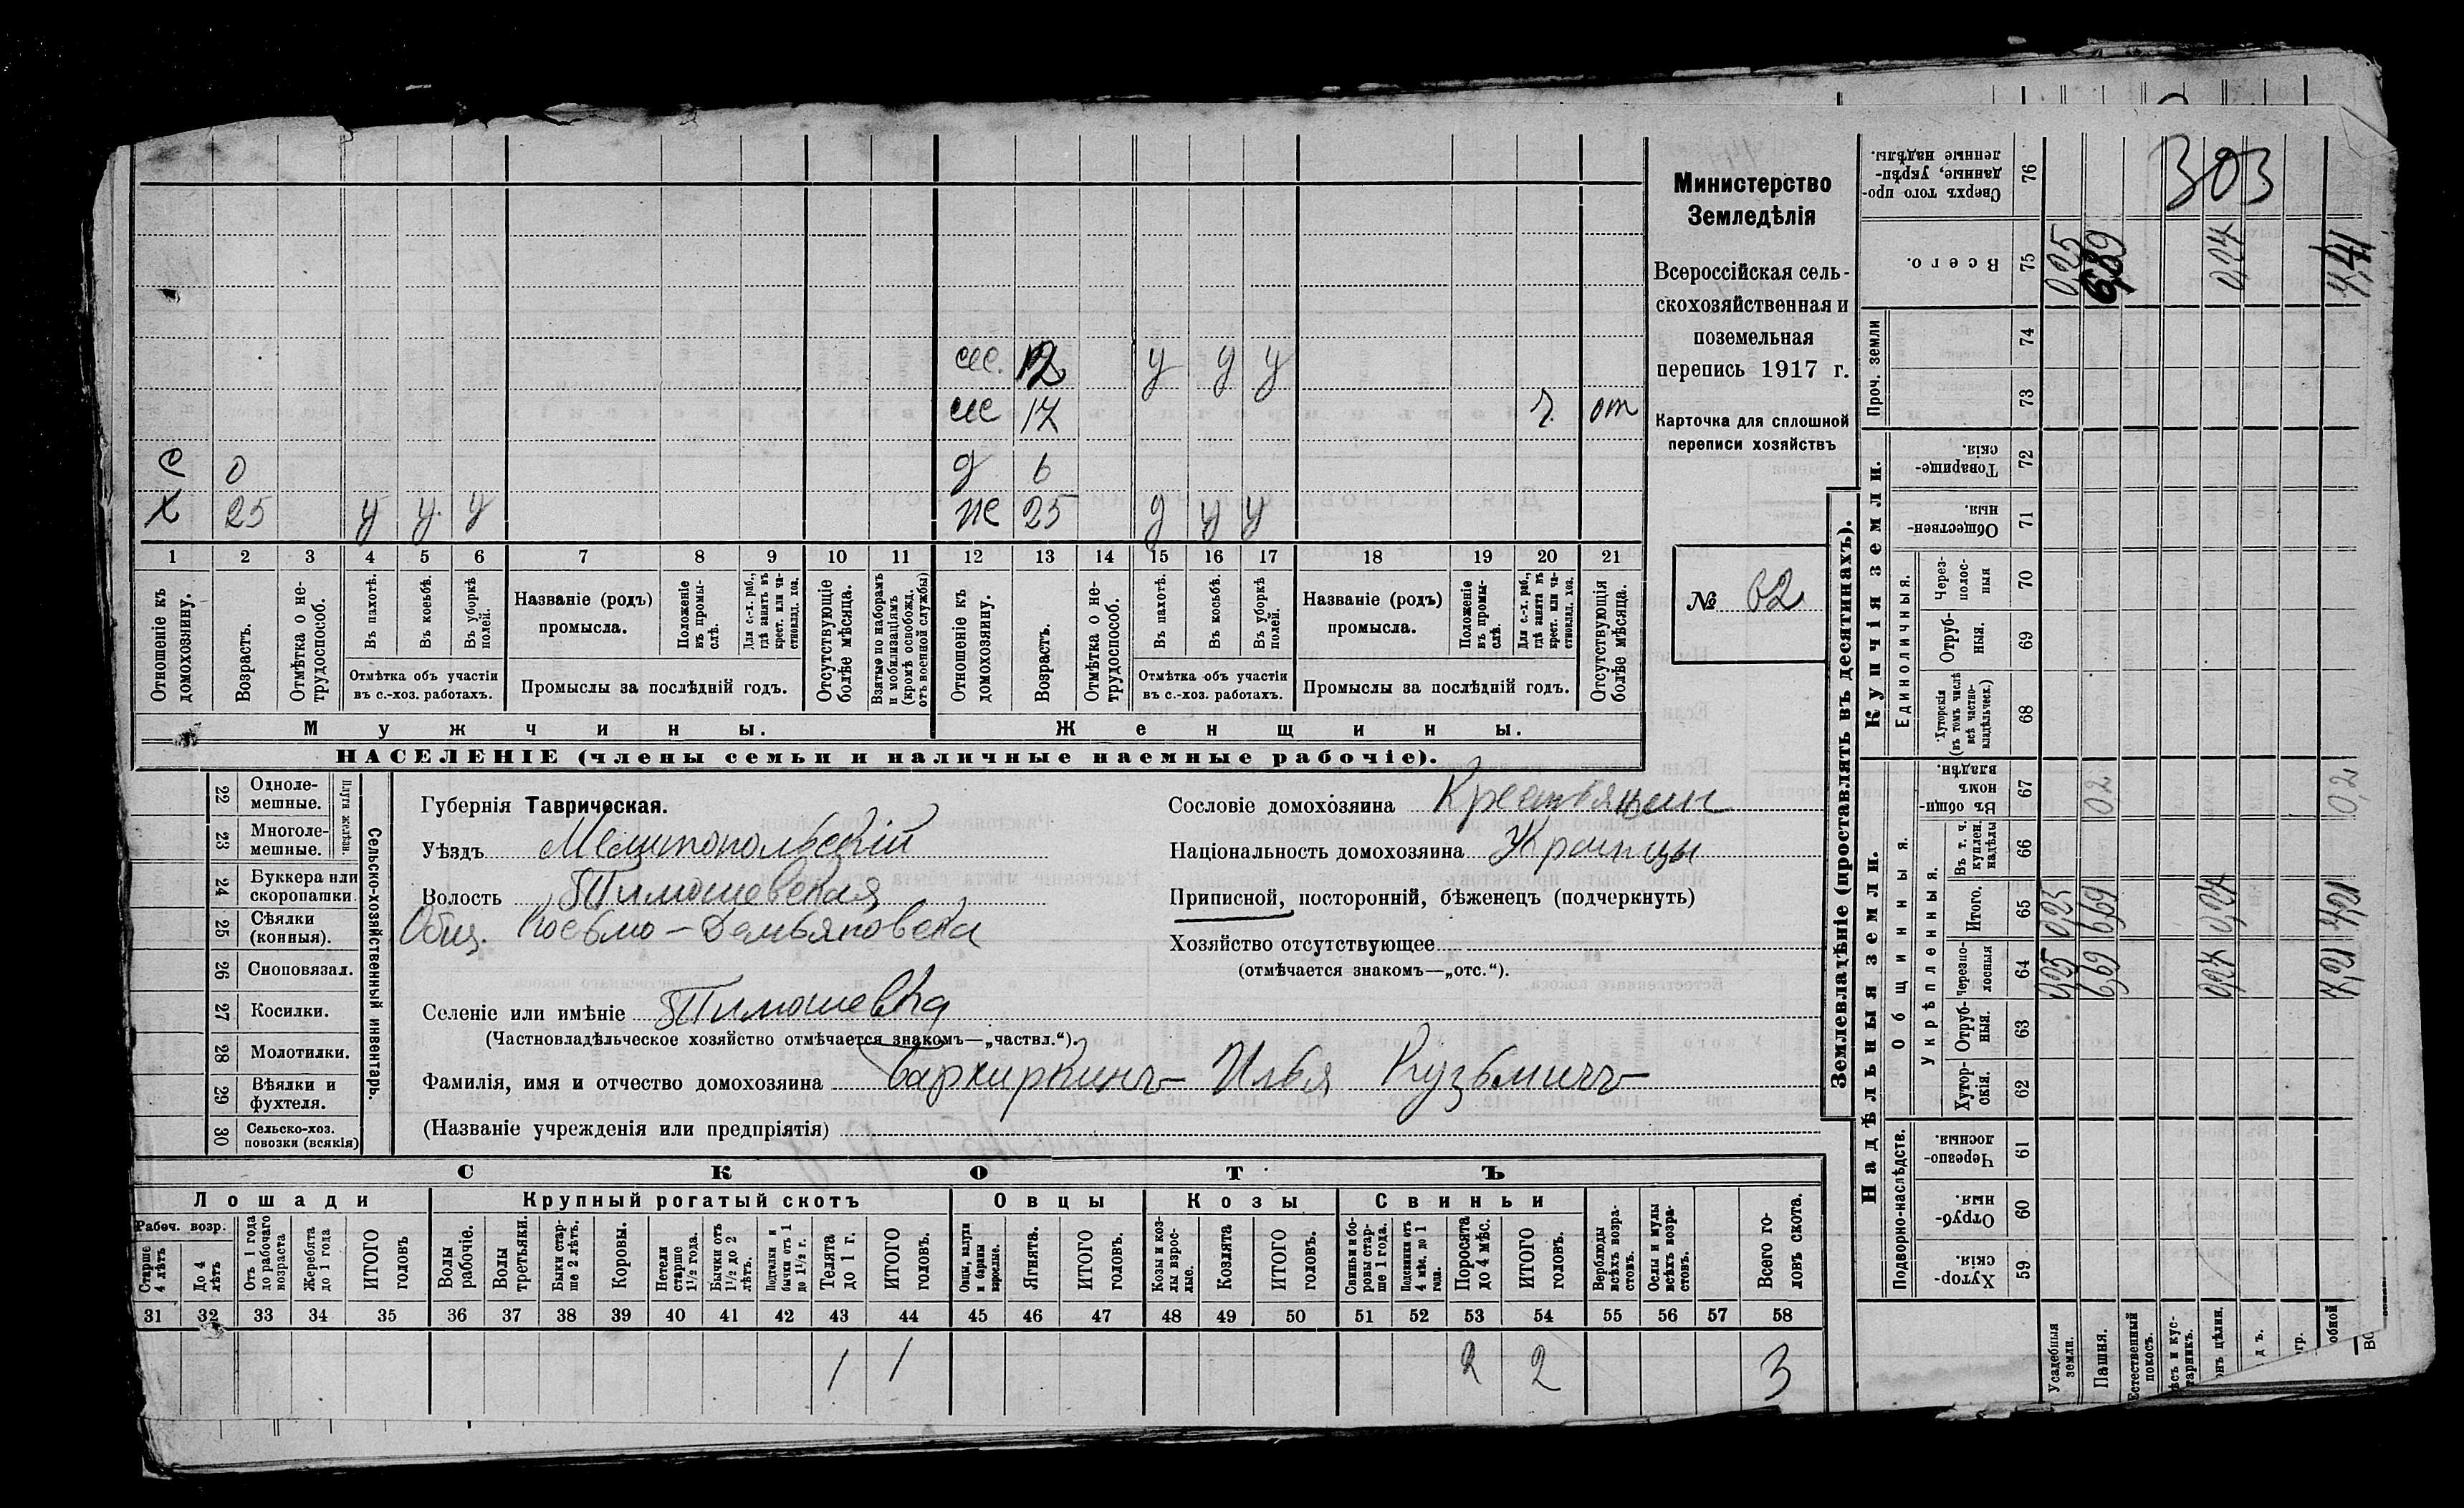 303
Министерство
Земледѣлія
Всероссійская сель-
скохозяйственная и
поземельная
перепись 1917 г.
Карточка для сплошной
переписи хозяйствъ
№ 62
12 у у у
17 от
с 0
д 6
х 25 у у у
же 25 у у у
1 2 3 4 5 6 7 8 9 10 11 12 13 14 15 16 17 18 19 20 21
Отношеніе къ домохозяину.
Возрастъ.
Отмѣтка о не-трудоспособ.
Въ пахотѣ.
Въ косьбѣ.
Въ уборкѣ полей.
Отмѣтка объ участіи
въ с.-хоз. работахъ.
Названіе (родъ)
промысла.
Положеніе въ промы-слѣ.
Для с.-х. раб., гдѣ занятъ въ крест. или ча-стновлад. хоз.
Промыслы за послѣдній годъ.
Отсутствующіе болѣе мѣсяца.
Взятые по наборамъ и мобилизаціямъ (кромѣ освобожд. отъ военной службы)
Отношеніе къ домохозяину.
Возрастъ.
Отмѣтка о не-трудоспособ.
Въ пахотѣ.
Въ косьбѣ.
Въ уборкѣ полей.
Отмѣтка объ участіи
въ с.-хоз. работахъ.
Названіе (родъ)
промысла.
Положеніе въ промы-слѣ.
Для с.-х. раб., гдѣ занята въ крест. или ча-стновлад. хоз.
Промыслы за послѣдній годъ.
Отсутствующія болѣе мѣсяца.
Мужчины.
Женщины.
НАСЕЛЕНІЕ (члены семьи и наличные наемные рабочіе).
Сельско-хозяйственный инвентарь.
Плуги желѣзн.
22 Одноле-мешные.
23 Многоле-мешные.
24 Буккера или скоропашки.
25 Сѣялки (конныя).
26 Сноповязал.
27 Косилки.
28 Молотилки.
29 Вѣялки и фухтеля.
30 Сельско-хоз. повозки (всякія)
Губернія Таврическая.
Уѣздъ Мелитопольскій
Волость Тимошевская
Общ. Косьмо-Демьяновска
Селеніе или имѣніе Тимошевка
(Частновладѣльческое хозяйство отмѣчается знакомъ—„частвл.“).
Фамилія, имя и отчество домохозяина Илья Кузьмичъ
(Названіе учрежденія или предпріятія)
Сословіе домохозяина Крестьянин
Національность домохозяина
Приписной, посторонній, бѣженецъ (подчеркнуть)
Хозяйство отсутствующее
(отмѣчается знакомъ—„отс.“).
СКОТЪ
Лошади
Крупный рогатый скотъ
Овцы
Козы
Свиньи
Рабоч. возр.
Старше 4 лѣтъ
До 4 лѣтъ
Отъ 1 года до рабочаго возраста
Жеребята до 1 года
ИТОГО головъ
Волы рабочіе.
Волы третьяки.
Быки стар-ше 2 лѣтъ.
Коровы.
Нетели старше 1½ года.
Бычки отъ 1½ до 2 лѣтъ.
Подтелки и бычки отъ 1 до 1½ г.
Телята до 1 г.
ИТОГО головъ.
Овцы, валухи и бараны взрослые.
Ягнята.
ИТОГО головъ.
Козы и коз-лы взрос-лые.
Козлята
ИТОГО головъ.
Свиньи и бо-ровы стар-ше 1 года.
Подсвинки отъ 4 мѣс. до 1 года.
Поросята до 4 мѣс.
ИТОГО головъ.
Верблюды всѣхъ возра-стовъ.
Ослы и мулы всѣхъ возра-стовъ.
Всего го-ловъ скота.
31 32 33 34 35 36 37 38 39 40 41 42 43 44 45 46 47 48 49 50 51 52 53 54 55 56 57 58
1 1 2 2 3
Землевладѣніе (проставлять въ десятинахъ).
Надѣльныя земли.
Купчія земли.
Проч. земли
Подворно-наслѣдств.
Общинныя.
Укрѣпленныя.
Единоличныя.
Хутор-скія. 59
Отруб-ныя. 60
Черезпо-лосныя. 61
Хутор-скія. 62
Отруб-ныя. 63
Черезпо-лосныя 64
Итого. 65
Въ т. ч. куплен. надѣлы 66
Въ общин-номъ владѣн. 67
Хуторскія (въ томъ числѣ всѣ частно-владѣльческ.) 68
Отруб-ныя. 69
Через-полос-ныя 70
Обществен-ныя. 71
Товарище-скія. 72
73
74
Всего. 75
Сверхъ того про-данные, укрѣп-ленные надѣлы. 76
Усадебныя земли. 0,25 0,25 0,25
Пашня. 6,69 6,69 0,2 6,89
Естественный покосъ.
0,27 0,27
7,21 7,21 0,2 7,41